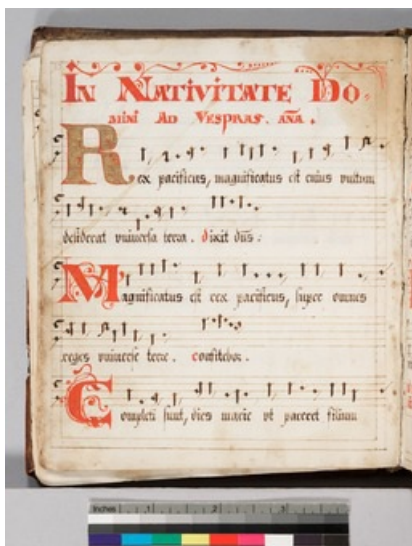 In Nativitate Do-
mini Ad Vespras. ana.
Rex pacificus, magnificatus est cuius vultum
desiderat universa terra. dixit dns:
Magnificatus est rex pacificus, super omnes
reges universe terre. confitebor.
Completi sunt, dies marie vt pareret filium
Inches 1 2 3